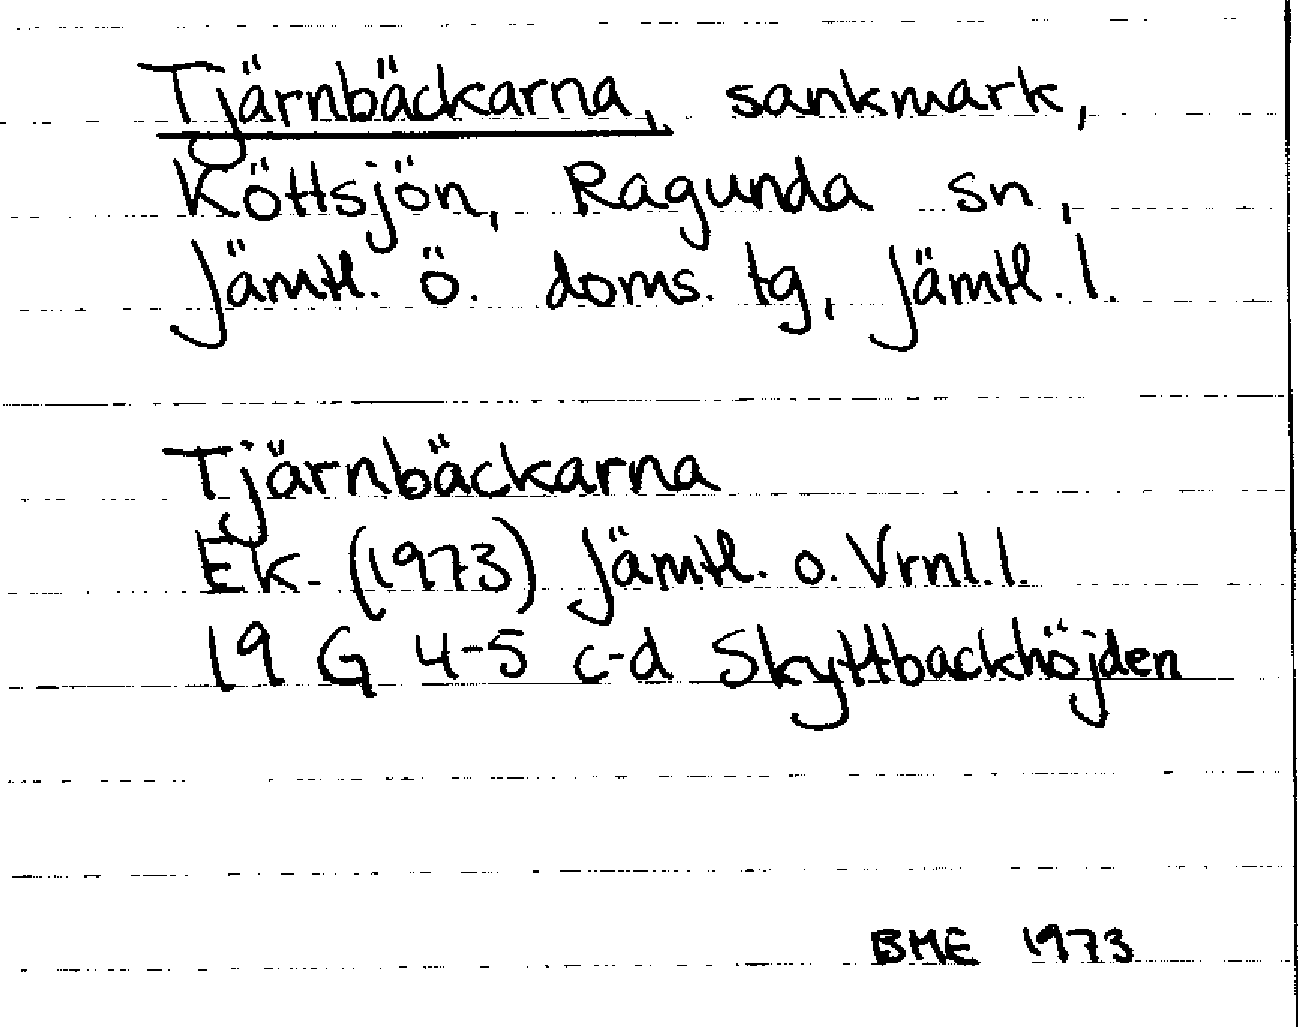 Tjärnbäckarna, sankmark,
Köttsjön, Ragunda sn,
Jämtl. ö. doms. tg, Jämtl. l.
Tjärnbäckarna
Ek. (1973) Jämtl. o. Vrnl. l.
19 G 4-5 c-d Skyttbackhöjden
BME 1973